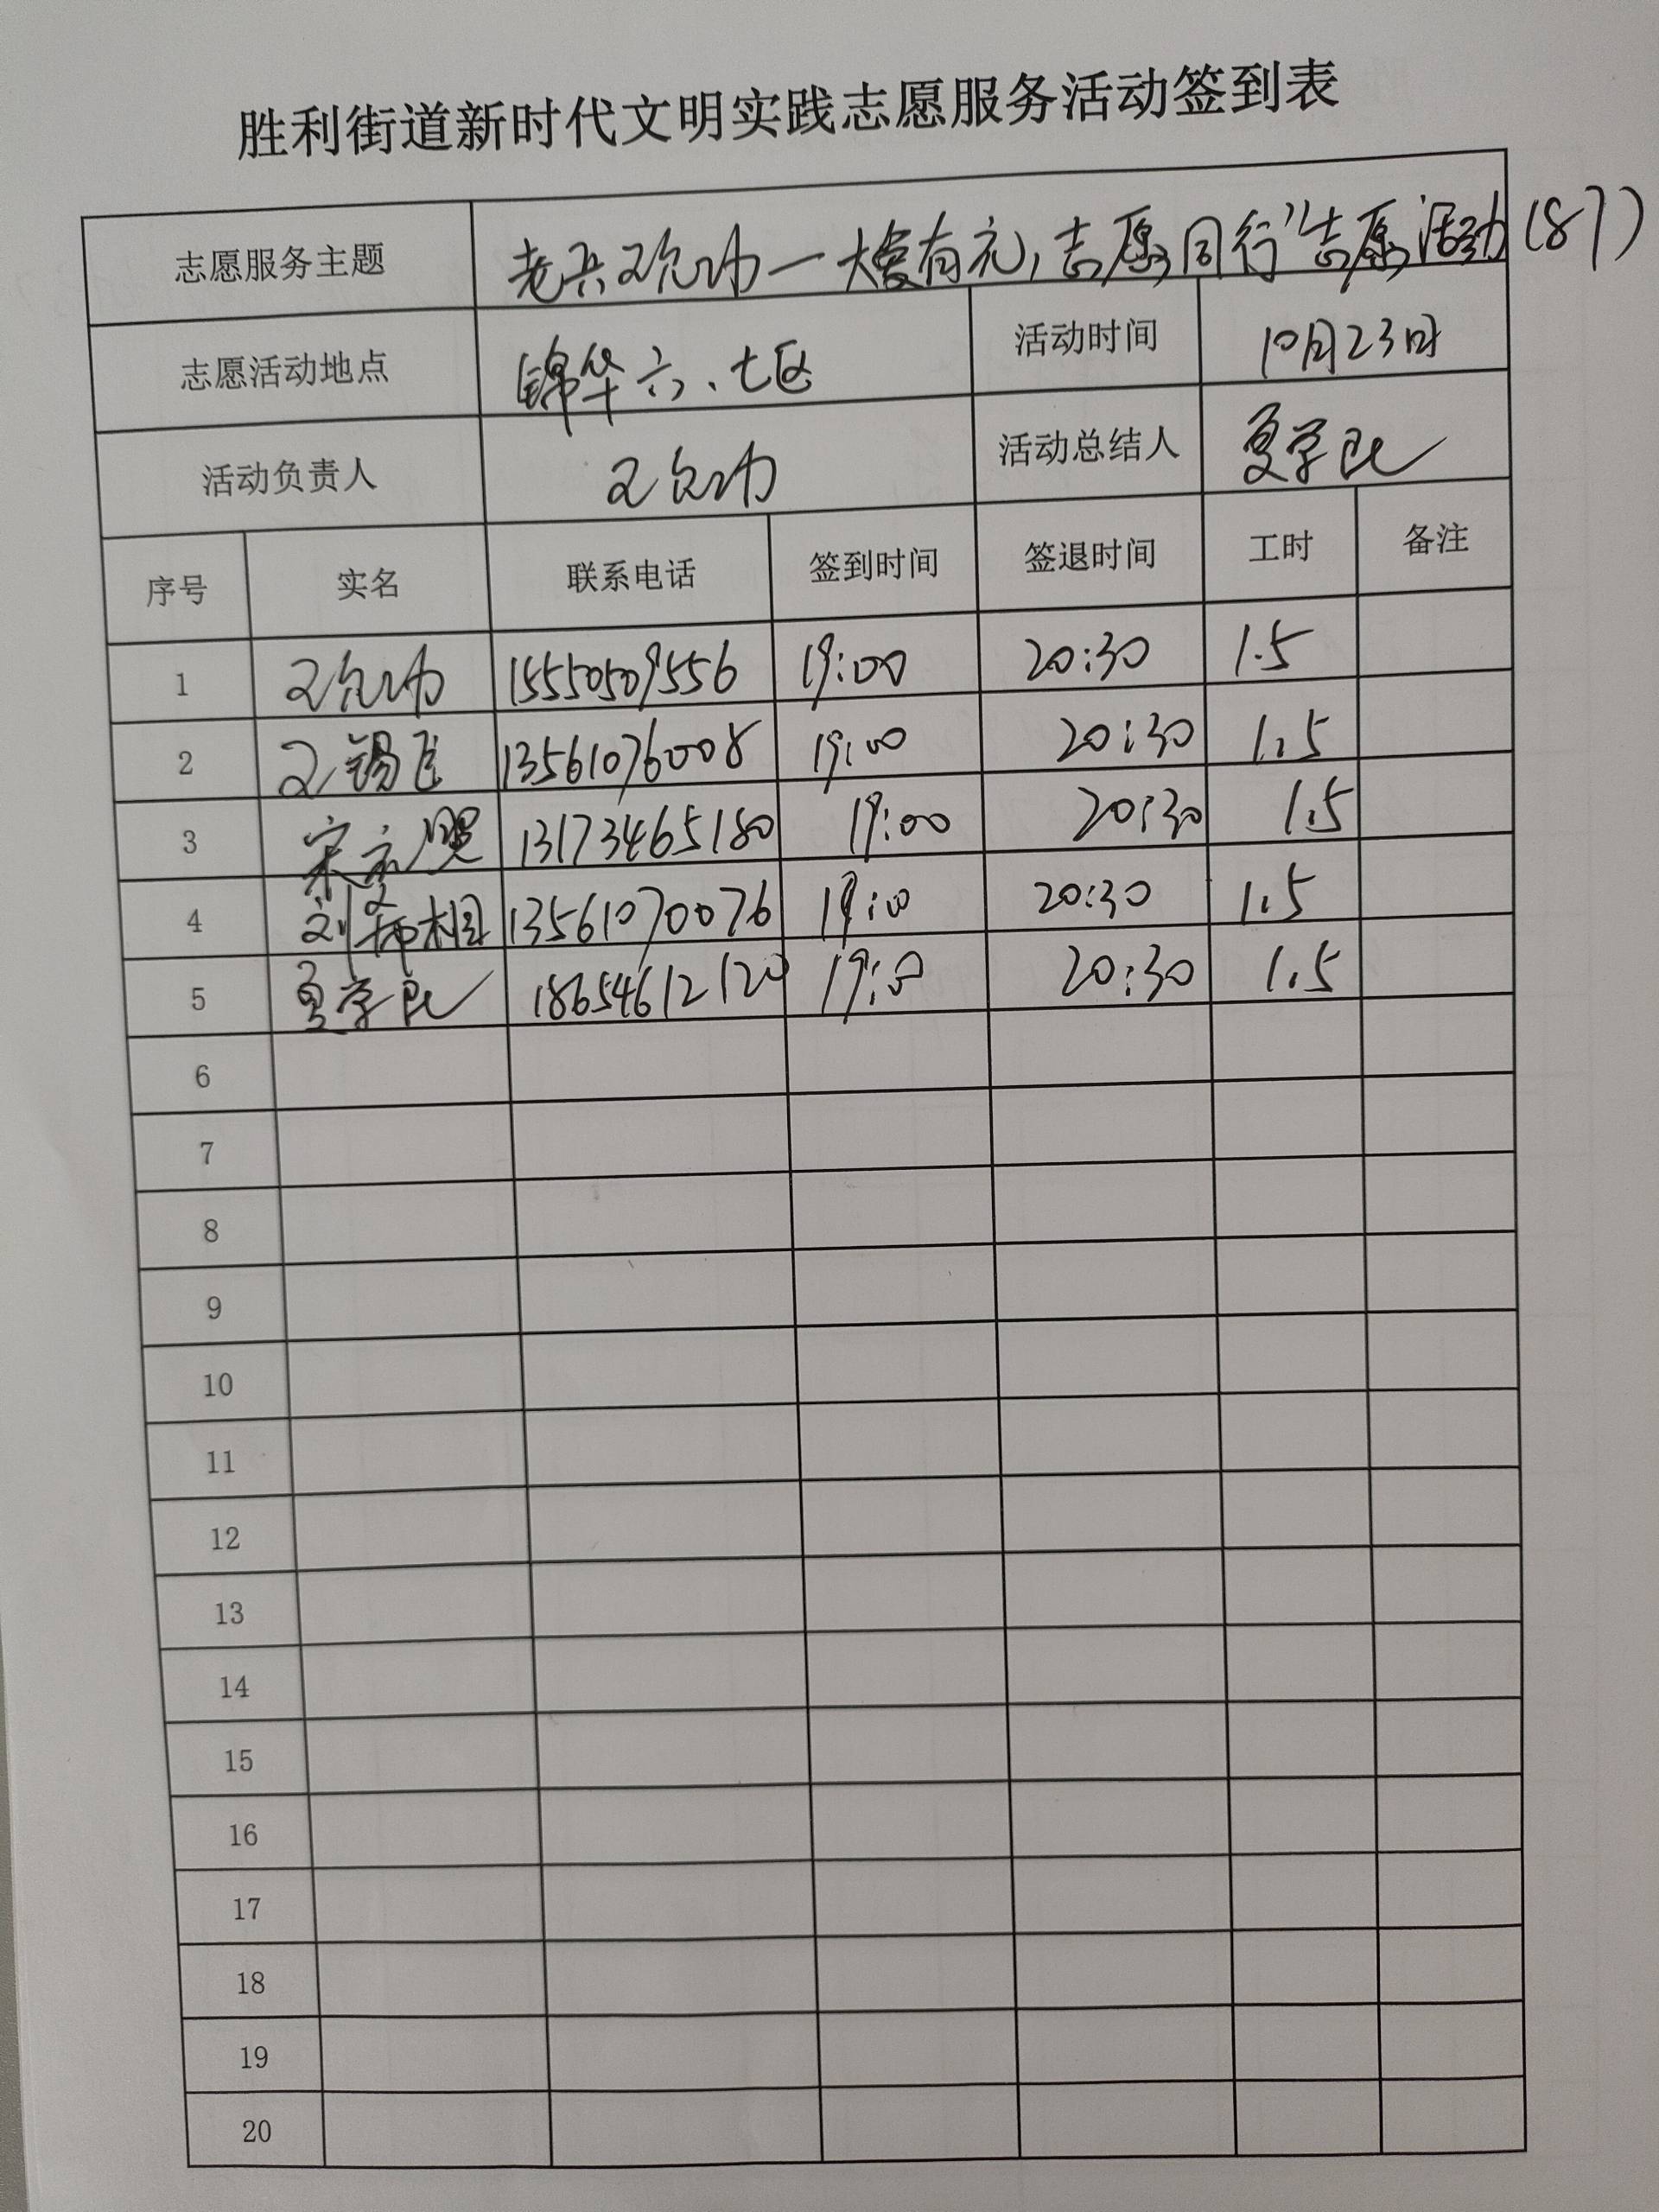 胜利街道新时代文明实践志愿服务活动签到表
志愿服务主题 老兵 一大爱有元,志愿同行"志愿活动(87)
志愿活动地点 锦华六、七区 活动时间 10月23日
活动负责人 活动总结人 夏学
序号 实名 联系电话 签到时间 签退时间 工时 备注
1 15550509556 19:00 20:30 1.5
2 13561076008 19:00 20:30 1.5
3 13173465180 19:00 20:30 1.5
4 13561070076 19:00 20:30 1.5
5 夏学 18654612120 19:00 20:30 1.5
6
7
8
9
10
11
12
13
14
15
16
17
18
19
20